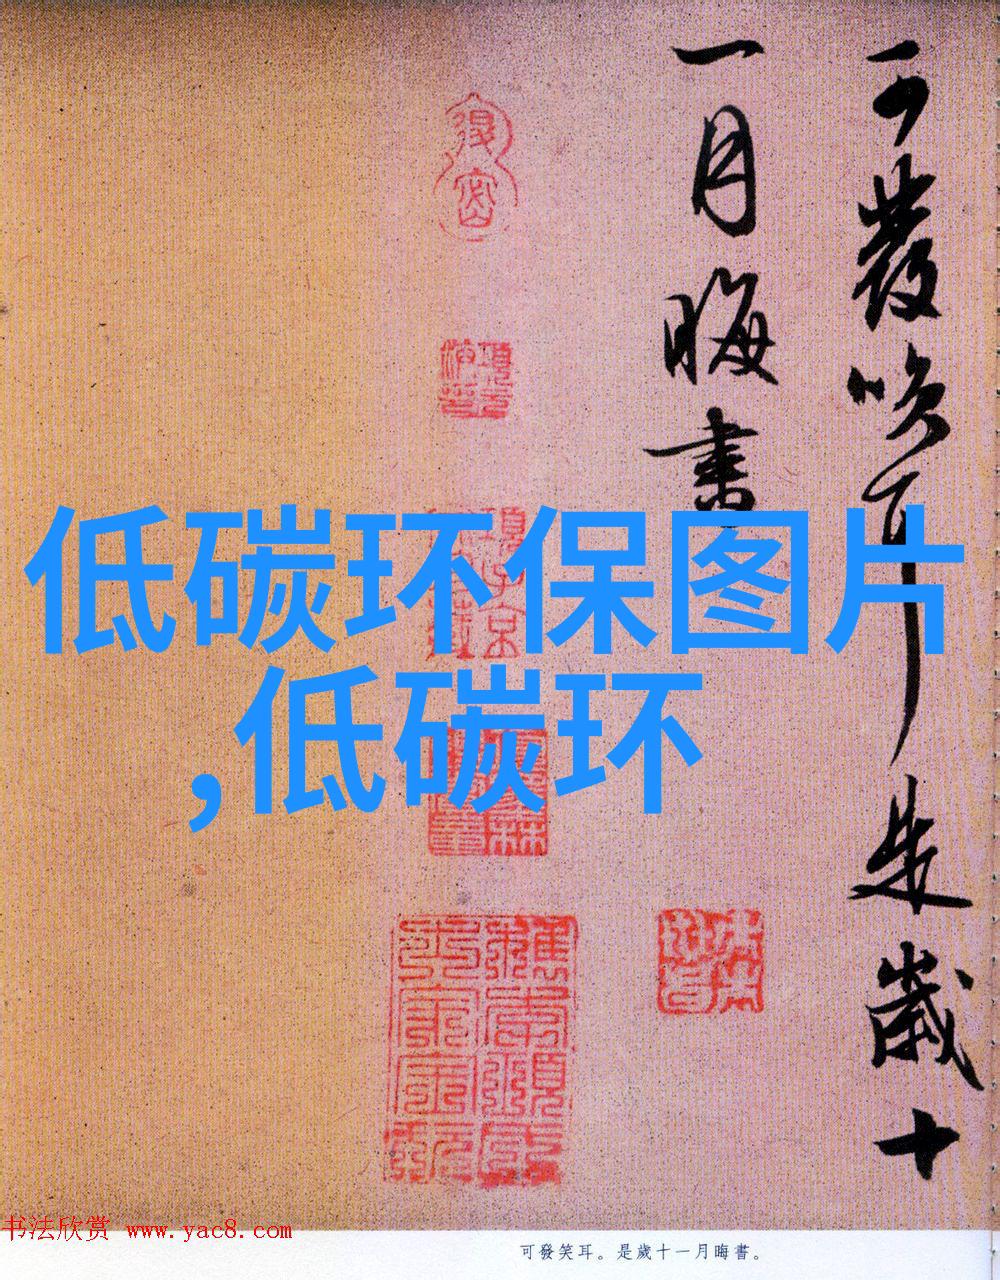 可發笑耳是歲十
一月晦書
低碳环保图片
,低碳环
书法欣赏 www.yac8.com
可發笑耳。是歲十一月晦書。